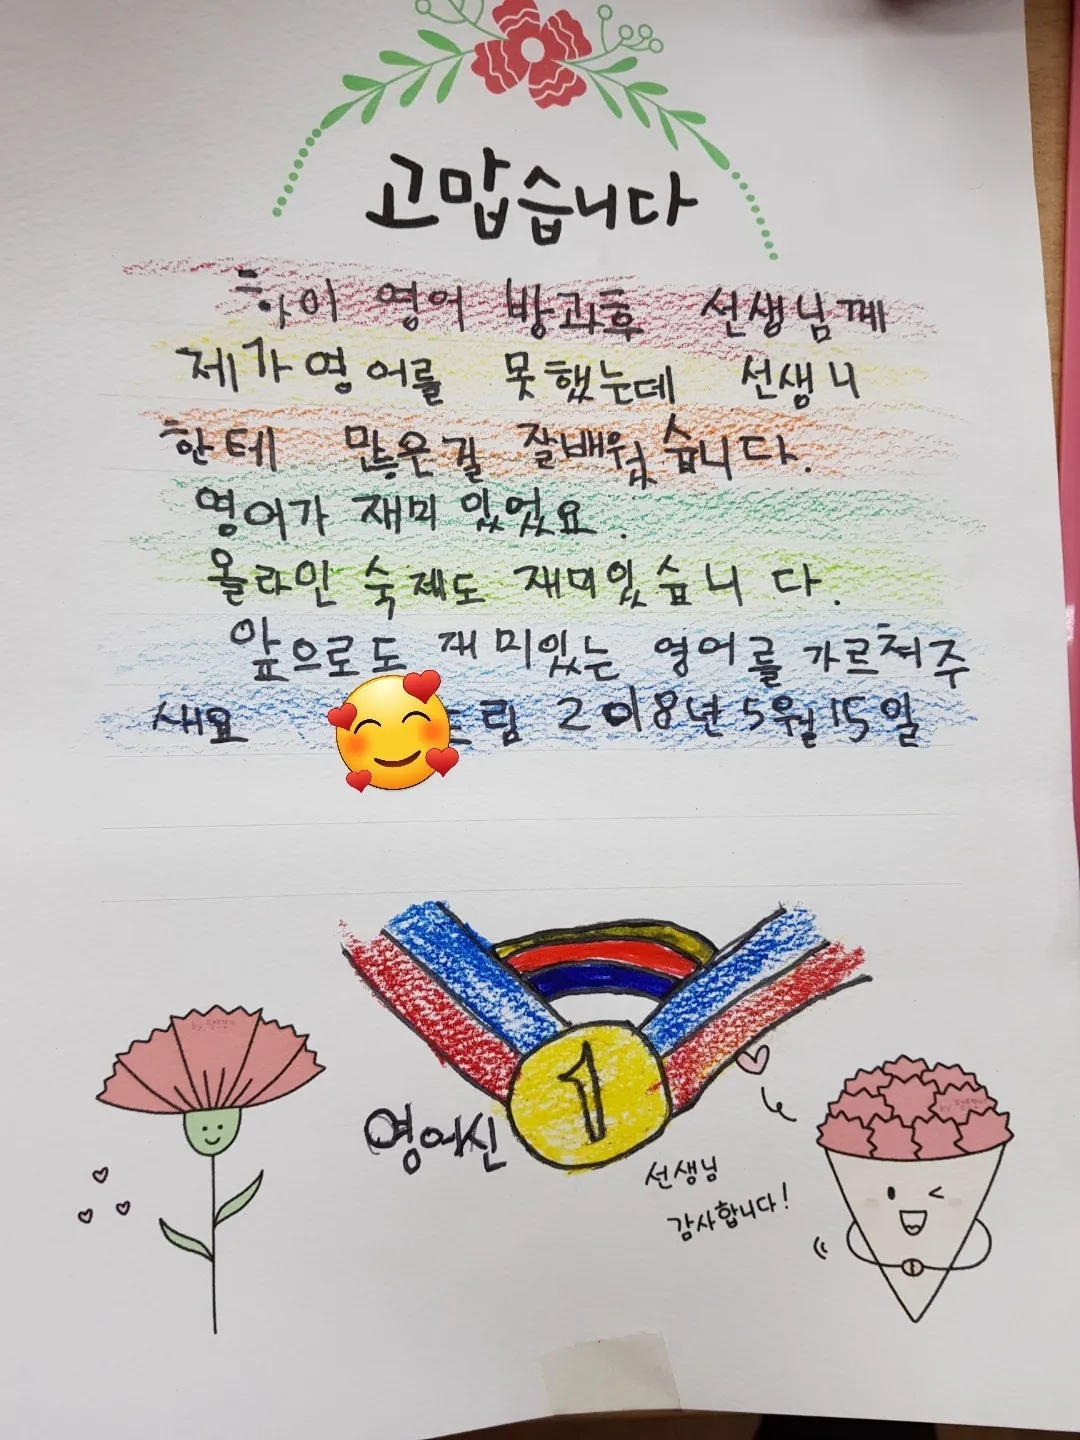 고맙습니다
하이 영어 방과후 선생님께
제가영어를 못했는데 선생니
한테 많은걸 잘배웠습니다.
영어가 재미 있었요.
올라인 숙제도 재미있습니다.
앞으로도 재미있는 영어를 가르쳐주
새요 드림 2018년 5월 15일
영어신
1
선생님
감사합니다!